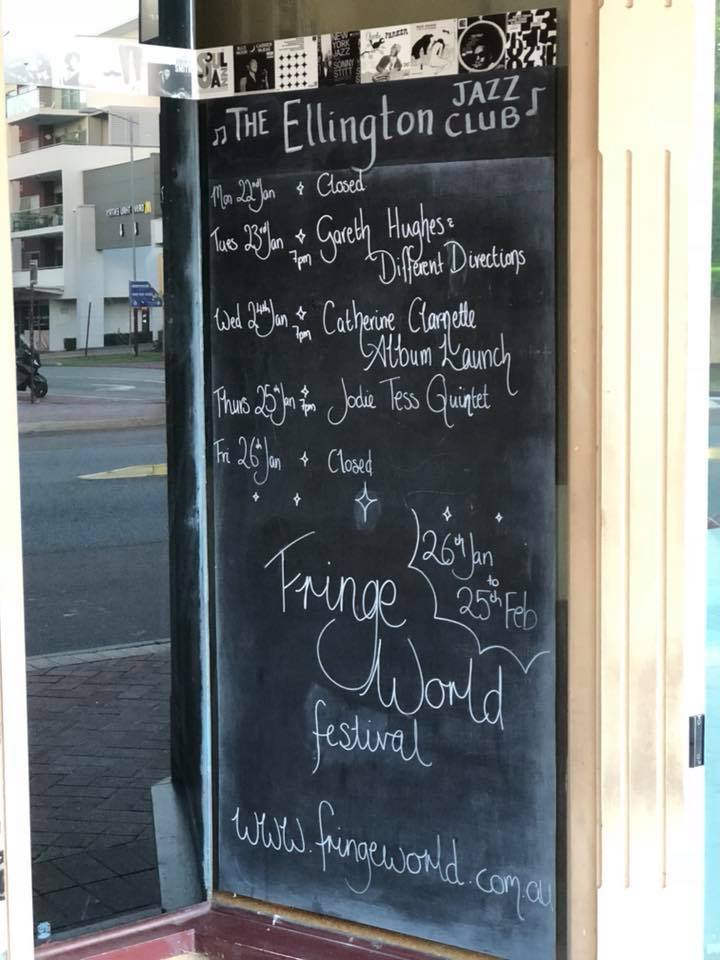 NEW YORK JAZZ
SONNY STITT
PARKER
THE Ellington JAZZ CLUB
Mon 22nd Jan Closed
Tues 23rd Jan 7pm Gareth Hughes &
Different Directions
Wed 24th Jan 7pm Catherine Clarnette
Album Launch
Thurs 25th Jan 7pm Jodie Tess Quintet
Fri 26th Jan Closed
26th Jan
to
25th Feb
Fringe
World
festival
www.fringeworld.com.au